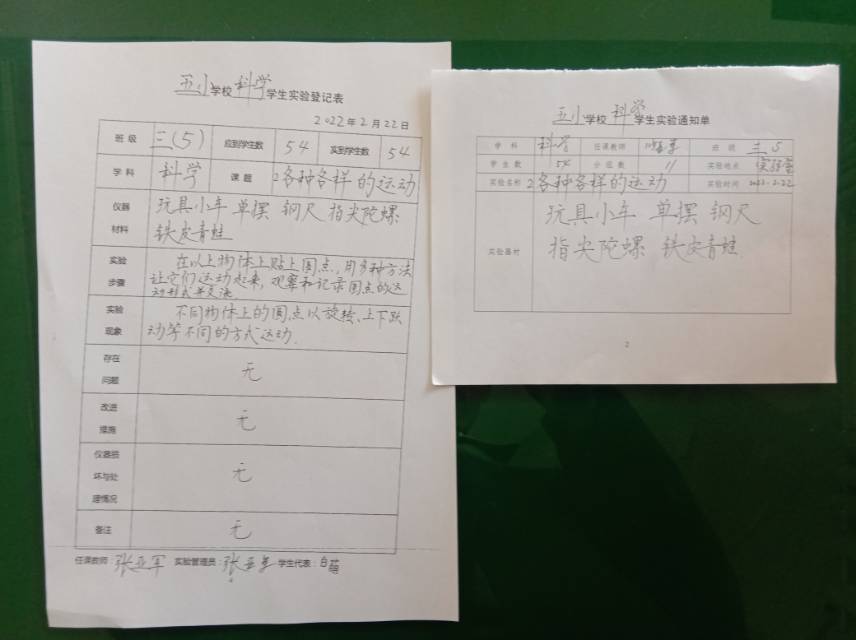 五小学校科学学生实验登记表
2022年2月22日
班级 三(5) 应到学生数 54 实到学生数 54
学科 科学 课题 2各种各样的运动
仪器材料 玩具小车 单摆 钢尺 指尖陀螺
铁皮青蛙
实验步骤 在以上物体上贴上圆点,用多种方法
让它们运动起来,观察和记录圆点的运
动形式并交流.
实验现象 不同物体上的圆点以旋转、上下跃
动等不同的方式运动.
存在问题 无
改进措施 无
仪器损坏与处理情况 无
备注 无
任课教师: 张亚军 实验管理员: 张亚军 学生代表: 白萌
五小学校科学学生实验通知单
学科 科学 任课教师 班级 三5
学生数 54 分组数 11 实验地点 实验室
实验名称 2各种各样的运动 实验时间 2022.2.22
实验器材 玩具小车 单摆 钢尺
指尖陀螺 铁皮青蛙
2